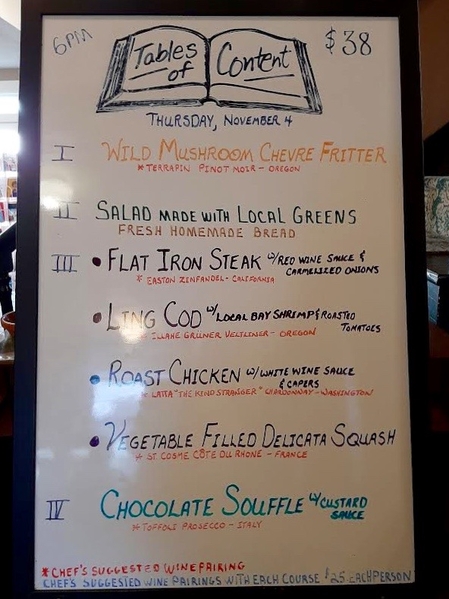 6PM
Tables of Content
$38
THURSDAY, NOVEMBER 4
I WILD MUSHROOM CHEVRE FRITTER
* TERRAPIN PINOT NOIR - OREGON
II SALAD MADE WITH LOCAL GREENS
FRESH HOMEMADE BREAD
III • FLAT IRON STEAK W/RED WINE SAUCE &
CARMELIZED ONIONS
* EASTON ZINFANDEL - CALIFORNIA
• LING COD W/LOCAL BAY SHRIMP & ROASTED
TOMATOES
* ILLAHE GRUNER VELTLINER - OREGON
• ROAST CHICKEN W/WHITE WINE SAUCE
& CAPERS
* LATTA "THE KIND STRANGER" CHARDONNAY - WASHINGTON
• VEGETABLE FILLED DELICATA SQUASH
* ST. COSME CÔTE DU RHONE - FRANCE
IV CHOCOLATE SOUFFLE W/CUSTARD
SAUCE
* TOFFOLI PROSECCO - ITALY
* CHEF'S SUGGESTED WINE PAIRING
CHEF'S SUGGESTED WINE PAIRINGS WITH EACH COURSE $25 EACH PERSON